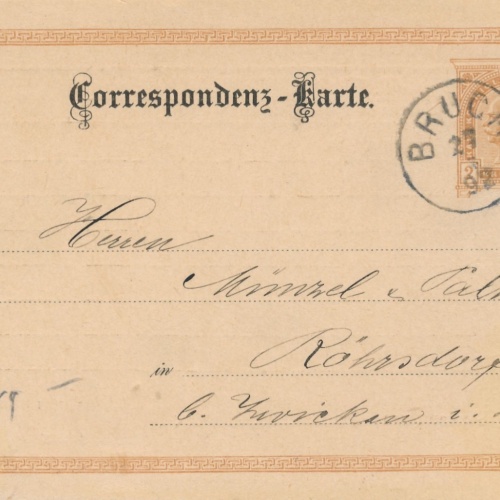 Correspondenz-Karte.
BRUCK
23
2
93
Herren
Münzel & Palm
in Röhrsdorf
b. Zwickau i.